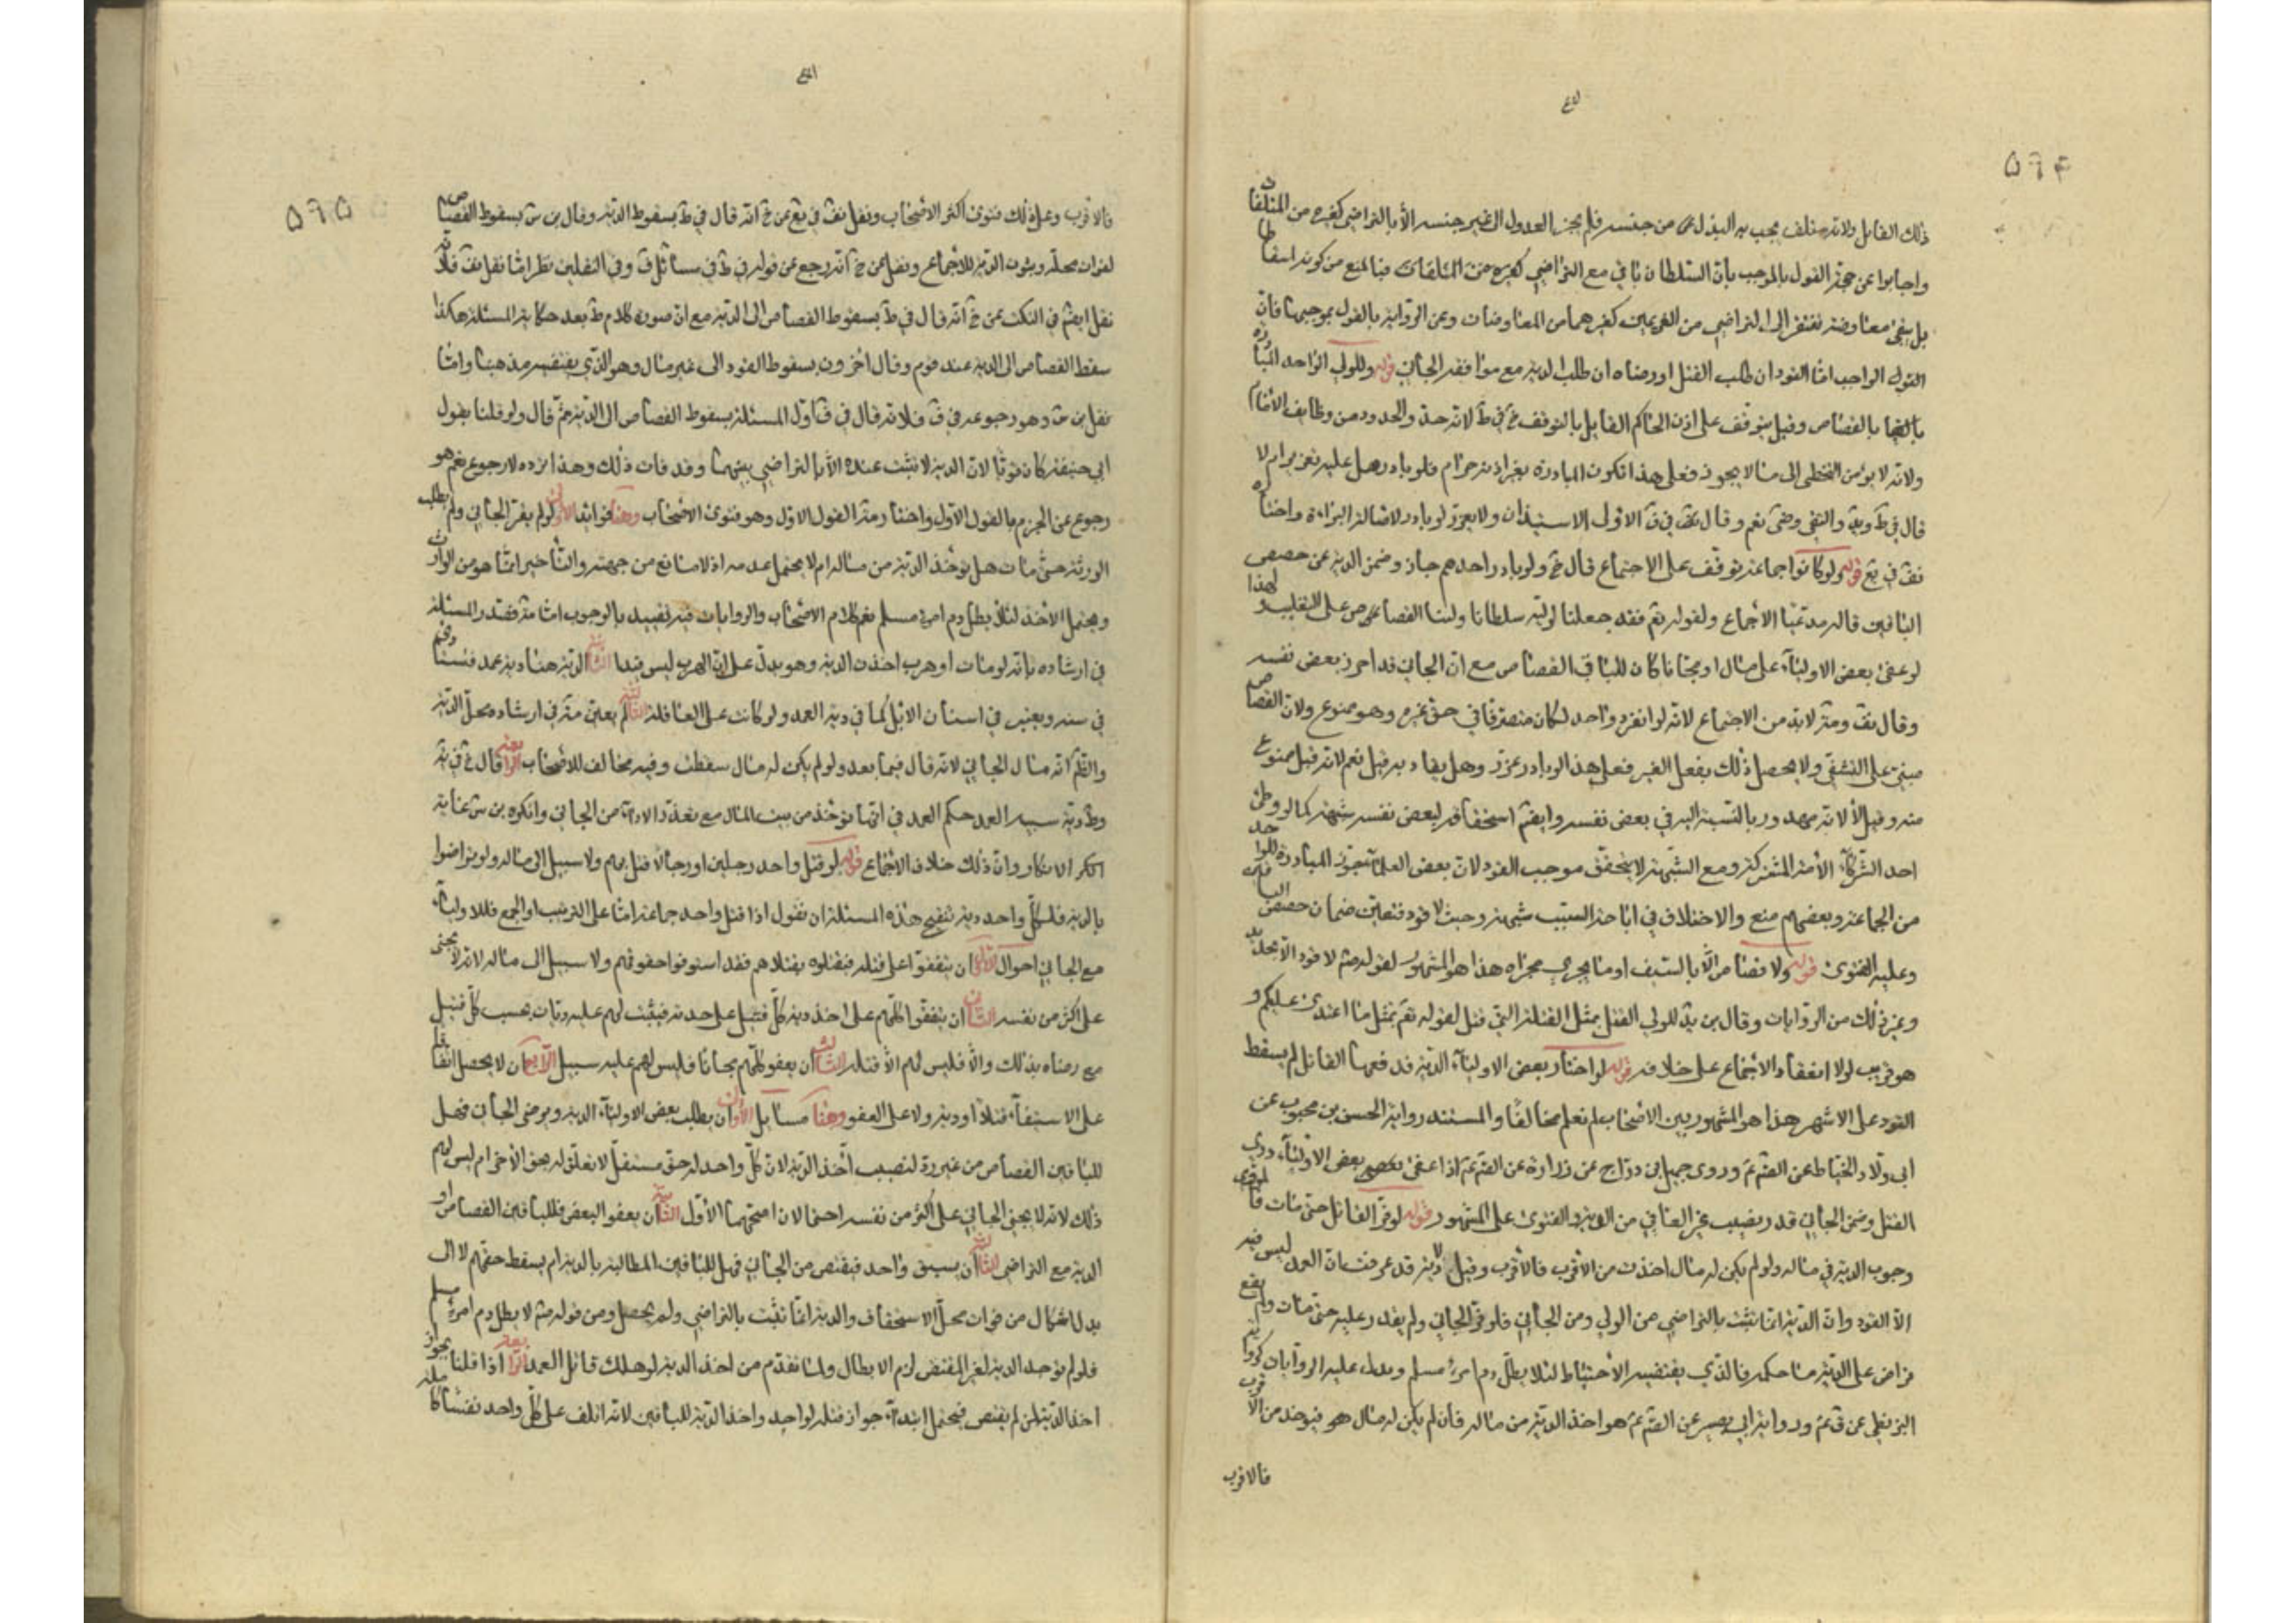 ۵۶۴
ذلك القاتل ولانه متلف يجب به البدل من جنسه فلم يجز العدول الى غير جنسه الا بالتراضي كغيره من المتلفات
واجابوا عن حجة القول بالموجب بان السلطان باق مع التراضي كغيره من المتلفات فيالمنع من كونه اسقاطا
بل يبقى معاوضة تفتقر الى التراضي من الغريمين كغيرهما من المعاوضات وعن الرواية بالقول بموجبها فان
القول الواجب اما القود ان طلب القتل او رضاه ان طلب الدية مع موافقة الجاني قوله وللولي الواحد المبادرة
بالقصاص وقيل يتوقف على اذن الحاكم القايل بالتوقف خ في ط لانه حد والحدود من وظايف الامام
ولانه لا يؤمن التخطي الى ما لا يجوز فعلى هذا تكون المبادرة بغير اذنه حرام فلو بادر هل عليه تعزير ام لا
قال في ط وية والتقى وضى نعم وقال في ف الاولى الاستيذان ولا يعزر لو بادر لاصالة البراءة واختاره
في يع قوله ولو كانوا جماعة توقف على الاجتماع قال خ ولو بادر احدهم جاز وضمن الدية عن حصص
الباقين قاله مدعيا الاجماع ولقوله تع فقد جعلنا لوليه سلطانا ولبنا القصاص على التغليب لهذا
لو عفى بعض الاولياء على مال او مجانا كان للباقي القصاص مع ان الجاني قد احرز بعض نفسه
وقال يق ومثله لابد من الاجتماع لانه لو انفرد واحد لكان متصرفا في حق غيره وهو ممنوع ولان القصاص
مبني على التشفي ولا يحصل ذلك بفعل الغير فعلى هذا لو بادر عزر وهل يقاد به قيل نعم لانه قتل ممنوع
منه وقيل لا لانه مهدور بالنسبة اليه في بعض نفسه وايضا استحقاقه لبعض نفسه شبهة كما لو وطئ
احد الشركاء الامة المشتركة ومع الشبهة لا يتحقق موجب القود لان بعض العلماء يجوز المبادرة للواحد
من الجماعة وبعضهم منع والاختلاف في اباحة السبب شبهة وحيث لا قود فتعين ضمان حصص الباقين
وعليه الفتوى قوله ولا قصاص الا بالسيف او ما يجري مجراه هذا هو المشهور لقوله ص لا قود الا بحديد
وغير ذلك من الروايات وقال بن يد للولي القتل بمثل القتلة التي قتل لقوله تع بمثل ما اعتدى عليكم و
هو قريب لولا انعقاد الاجماع على خلافه قوله لو اختار بعض الاولياء الدية فدفعها القاتل لم يسقط
القود على الاشهر هذا هو المشهور بين الاصحاب لم نعلم مخالفا والمستند رواية الحسن بن محبوب عن
ابي ولاد الحناط عن الصم ع وروى جميل بن دراج عن زرارة عن الصم ع اذا عفى بعض الاولياء دري
القتل وضمن الجاني قدر نصيب غير العافي من الدية والفتوى على المشهور قوله لو فر القاتل حتى مات فالمروي
وجوب الدية في ماله ولو لم يكن له مال اخذت من الاقرب فالاقرب وقيل لا دية قد عرفت ان العمد ليس فيه
الا القود وان الدية انما تثبت بالتراضي من الولي ومن الجاني فلو فر الجاني ولم يقدر عليه حتى مات ولم يقع
تراض على الدية ما حكمه فالذي يقتضيه الاحتياط لئلا يطل دم امرئ مسلم ويدل عليه الروايات كرواية
البزنطي عن ق ع ورواية ابي بصير عن الصم ع هو اخذ الدية من ماله فان لم يكن له مال هو فيؤخذ من الاقرب
فالاقرب
۵۶۵
فالاقرب وعلى ذلك فتوى اكثر الاصحاب ونقل يق في يع عن خ انه قال في ط بسقوط الدية وقال بن س بسقوط القصاص
لفوات محله وبثوت الدية للاجماع ونقل عن خ انه رجع عن قوله في ط في مسائل ف وفي النقلين نظر اما نقل يق فلانه
نقل ايضا في النكت عن خ انه قال في ط بسقوط القصاص الى الدية مع ان صورة كلام ط بعد حكاية المسئلة هكذا
سقط القصاص الى الدية عند قوم وقال اخرون بسقوط القود الى غير مال وهو الذي يقتضيه مذهبنا واما
نقل بن س وهو رجوعه في ف فلانه قال في ف اول المسئلة بسقوط القصاص الى الدية ثم قال ولو قلنا بقول
ابي حنيفة كان قويا لان الدية لا تثبت عنده الا بالتراضي بينهما وقد فات ذلك وهذا تردد لا رجوع نعم هو
رجوع عن الجزم بالقول الاول واختار مثله القول الاول وهو فتوى الاصحاب وهنا فوايد الاولى لو لم يفر الجاني ولم يطلب
الورثة حتى مات هل يؤخذ الدية من ماله ام لا يحتمل عدمه اذ لا مانع من جهته والتاخير انما هو من الوارث
ويحتمل الاخذ لئلا يطل دم امرئ مسلم نعم كلام الاصحاب والروايات فيه تقييد بالوجوب اما مثله فصدر المسئلة
في ارشاده بانه لو مات او هرب اخذت الدية وهو يدل على ان الهرب ليس قيدا الثانية الدية هنا دية عمد فتستادى
في سنة ويعتبر في اسنان الابل كما في دية العمد ولو كانت على العاقلة الثالثة لم يعين مثله في ارشاده محل الدية
والظم انه مال الجاني لانه قال فيما بعد ولو لم يكن له مال سقطت وفيه مخالف للاصحاب الرابعة قال خ في ية
الكر الانكار وان ذلك خلاف الاجماع قوله لو قتل واحد رجلين او رجالا قتل بهم ولا سبيل الى ماله ولو تراضوا
بالدية فلكل واحد دية تنقيح هذه المسئلة ان نقول اذا قتل واحد جماعة اما على الترتيب او الجمع فللاولياء
مع الجاني احوال الاولى ان يتفقوا على قتله فيقتلوه بقتلاهم فقد استوفوا حقوقهم ولا سبيل الى ماله لانه لا يجنى
على اكثر من نفسه الثانية ان يتفقوا كلهم على اخذ دية كل قتيل على حدته فيثبت لهم عليه ديات بحسب كل قتيل
مع رضاه بذلك والا فليس لهم الا قتله الثالثة ان يعفو كلهم مجانا فليس لهم عليه سبيل الرابعة ان لا يحصل اتفاق
على الاستيفاء قتلا او دية ولا على العفو وهنا مسايل الاولى ان يطلب بعض الاولياء الدية ويرضى الجاني فهل
للباقين القصاص من غير رد لنصيب اخذ الدية لان كل واحد له حق مستقل لا تعلق له بحق الاخر ام ليس لهم
ذلك لانه لا يجني الجاني على اكثر من نفسه احتمالان اصحهما الاول الثانية ان يعفو البعض فللباقين القصاص او
الدية مع التراضي الثالثة ان يسبق واحد فيقتص من الجاني فهل للباقين المطالبة بالدية ام يسقط حقهم لا الى
بدل اشكال من فوات محل الاستحقاق والدية انما تثبت بالتراضي ولم يحصل ومن قوله ص لا يطل دم امرئ مسلم
فلو لم يؤخذ الدية لغير المقتص لزم الابطال ولما تقدم من اخذ الدية لو هلك قاتل العمد الرابعة اذا قلنا بجواز
اخذ الدية لمن لم يقتص فيحتمل ابتداء جواز قتله لواحد واخذ الدية للباقين لانه اتلف على كل واحد نفسا كاملة